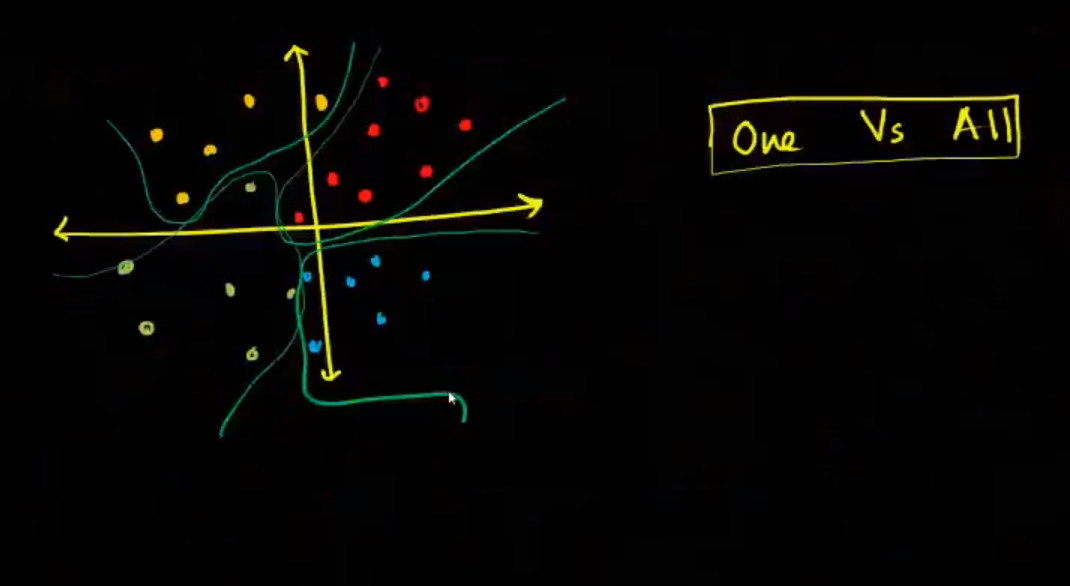 One Vs All